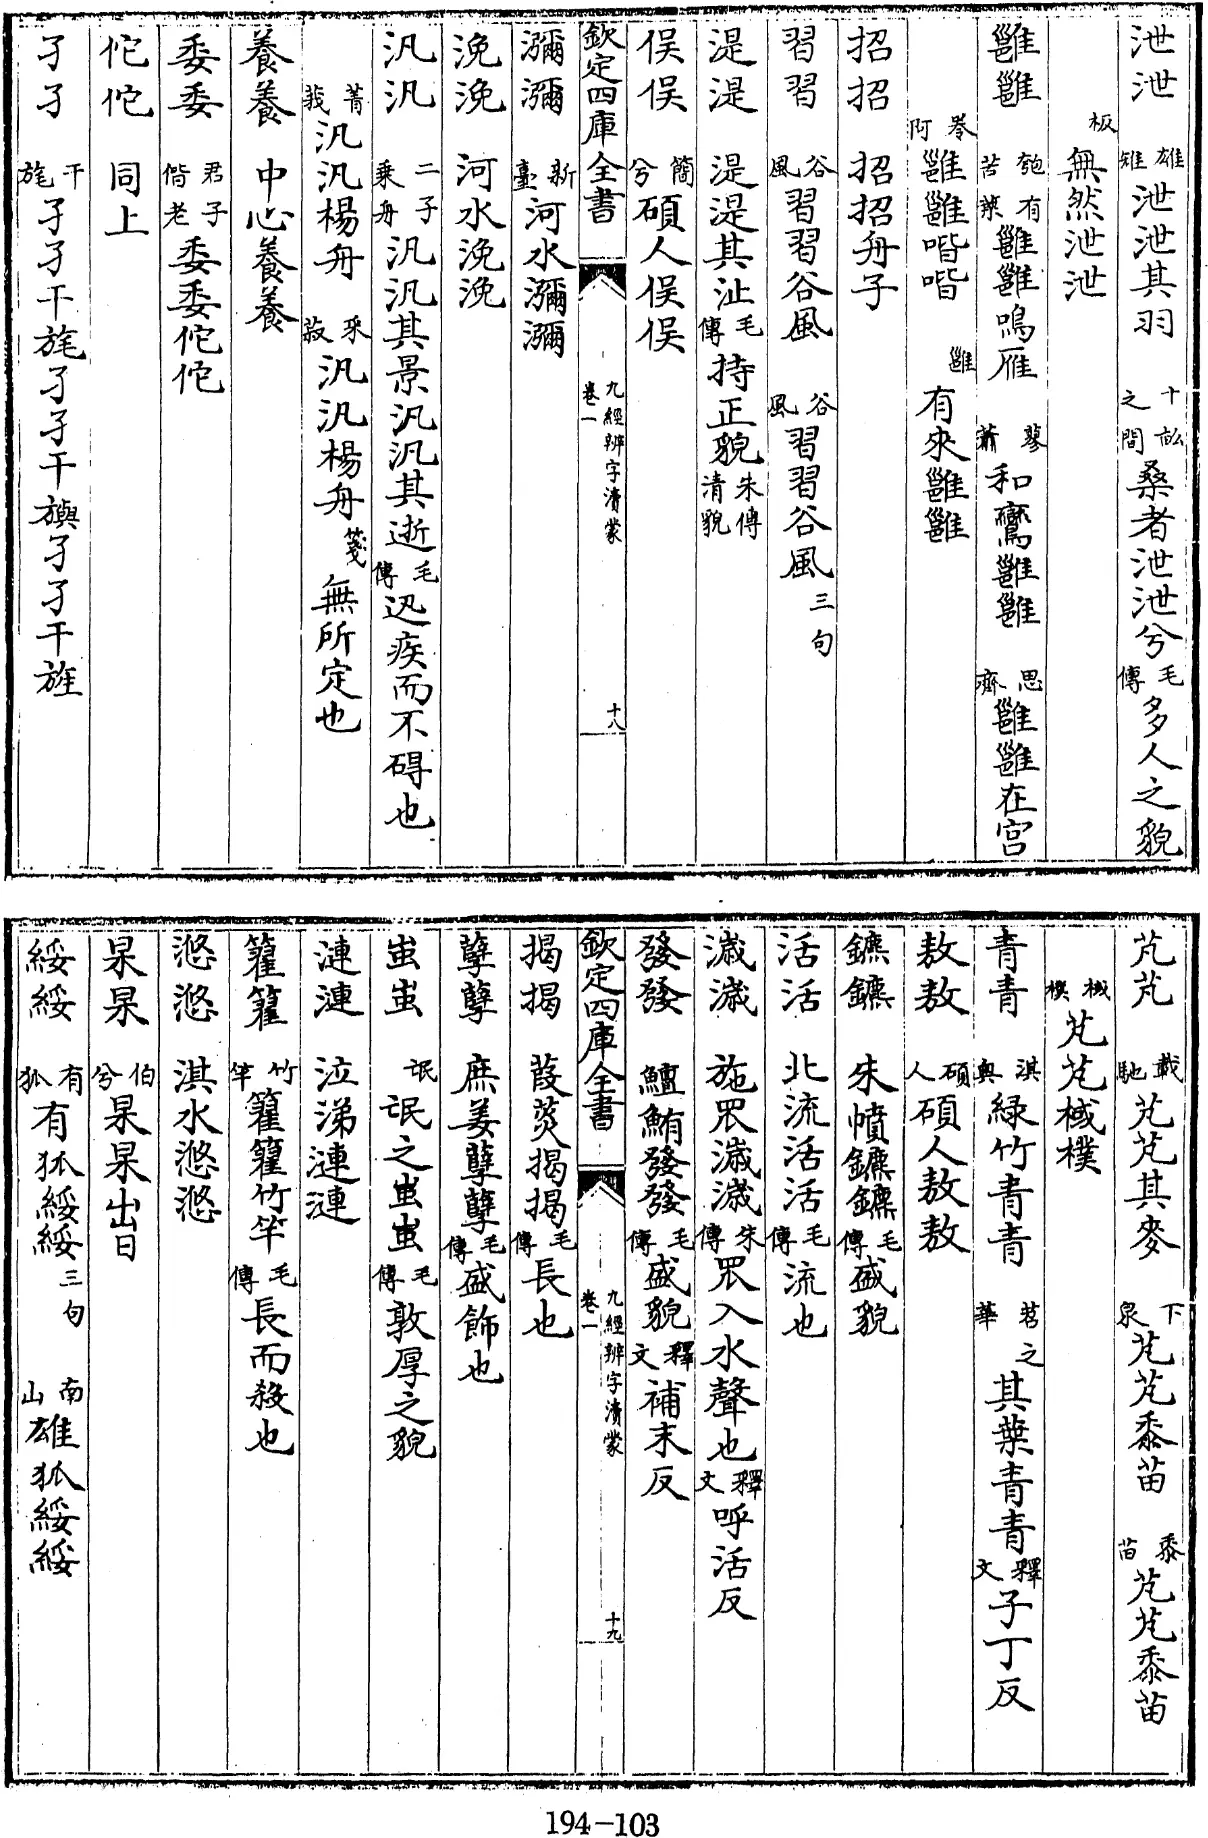 泄泄 雄雉泄泄其羽 十畝之間桑者泄泄兮毛傳多人之貌
板無然泄泄
雝雝 匏有苦葉雝雝鳴雁 蓼蕭和鸞雝雝 思齊雝雝在宫
卷阿雝雝喈喈 雝有來雝雝
招招 招招舟子
習習 谷風習習谷風 谷風習習谷風三句
湜湜 湜湜其沚毛傳持正貌朱傳清貌
俁俁 簡兮碩人俁俁
欽定四庫全書 九經辨字瀆蒙 卷一 十八
瀰瀰 新臺河水瀰瀰
浼浼 河水浼浼
汎汎 二子乗舟汎汎其景汎汎其逝毛傳迅疾而不碍也
菁莪汎汎楊舟 采菽汎汎楊舟箋無所定也
養養 中心養養
委委 君子偕老委委佗佗
佗佗 同上
孑孑 干旄孑孑干旄孑孑干旟孑孑干旌
芃芃 載馳芃芃其麥 下泉芃芃黍苗 黍苗芃芃黍苗
棫樸芃芃棫樸
青青 淇奥緑竹青青 苕之華其葉青青釋文子丁反
敖敖 碩人碩人敖敖
鑣鑣 朱幩鑣鑣毛傳盛貌
活活 北流活活毛傳流也
濊濊 施罛濊濊朱傳罛入水聲也釋文呼活反
發發 鱣鮪發發毛傳盛貌釋文補末反
欽定四庫全書 九經辨字瀆蒙 卷一 十九
揭揭 葭菼揭揭毛傳長也
孽孽 庶姜孽孽毛傳盛飾也
蚩蚩 氓氓之蚩蚩毛傳敦厚之貌
漣漣 泣涕漣漣
籊籊 竹竿籊籊竹竿毛傳長而殺也
滺滺 淇水滺滺
杲杲 伯兮杲杲出日
綏綏 有狐有狐綏綏三句 南山雄狐綏綏
194-103